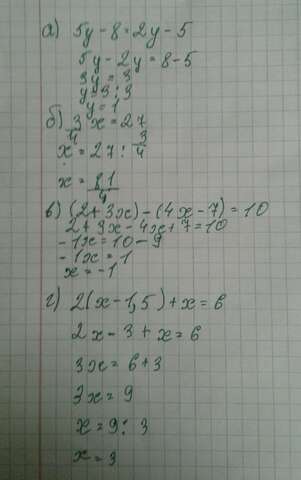 а) 5y - 8 = 2y - 5
5y - 2y = 8 - 5
3y = 3
y = 3 : 3
y = 1
б) 3/4 x = 27
x = 27 : 3/4
x = 81/4
в) (2 + 3x) - (4x - 7) = 10
2 + 3x - 4x + 7 = 10
- 1x = 10 - 9
- 1x = 1
x = -1
г) 2(x - 1,5) + x = 6
2x - 3 + x = 6
3x = 6 + 3
3x = 9
x = 9 : 3
x = 3